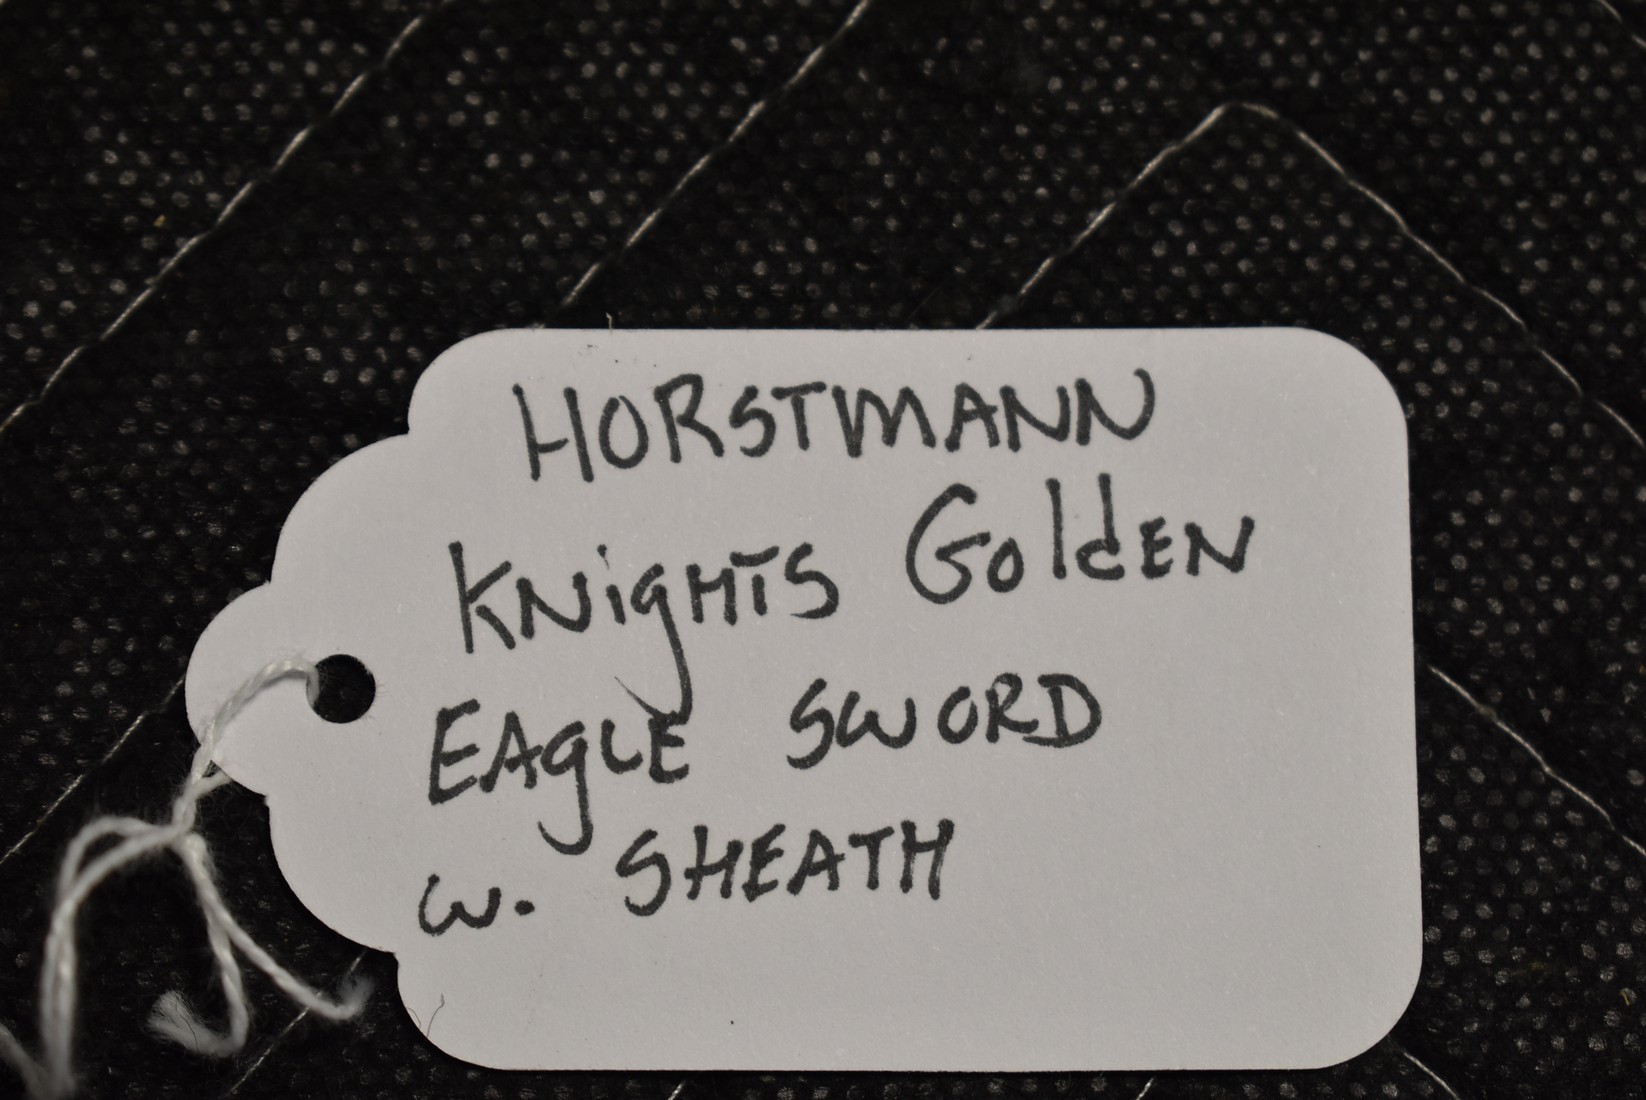 HORSTMANN
KNigHTS GoldEN
EAgLE SWORD
w. SHEATH